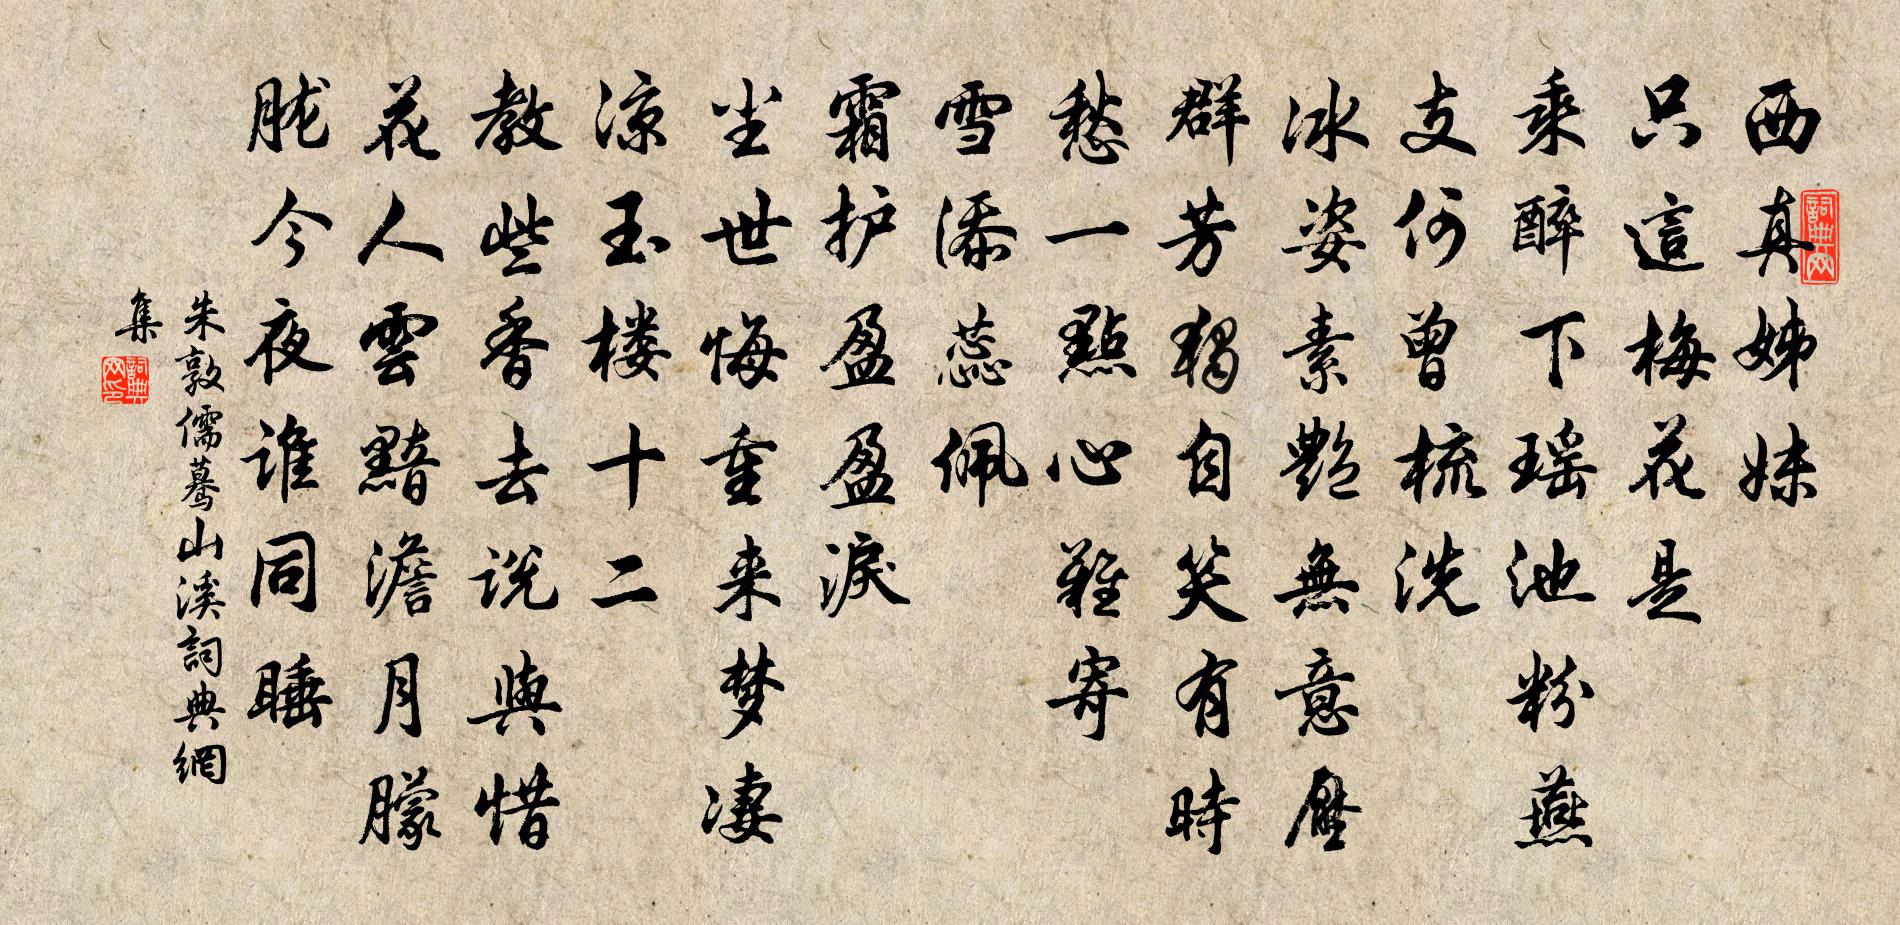 西真姊妹
只這梅花是
乘醉下瑶池粉燕
支何曾梳洗
冰姿素艷無意壓
群芳独自笑有時
愁一點心難寄
雪添蕊佩
霜护盈盈淚
尘世悔重来梦凄
凉玉楼十二
教些香去说與惜
花人雲黯澹月朦
胧今夜谁同睡
朱敦儒蓦山溪詞典網
集
詞典网
詞典网印